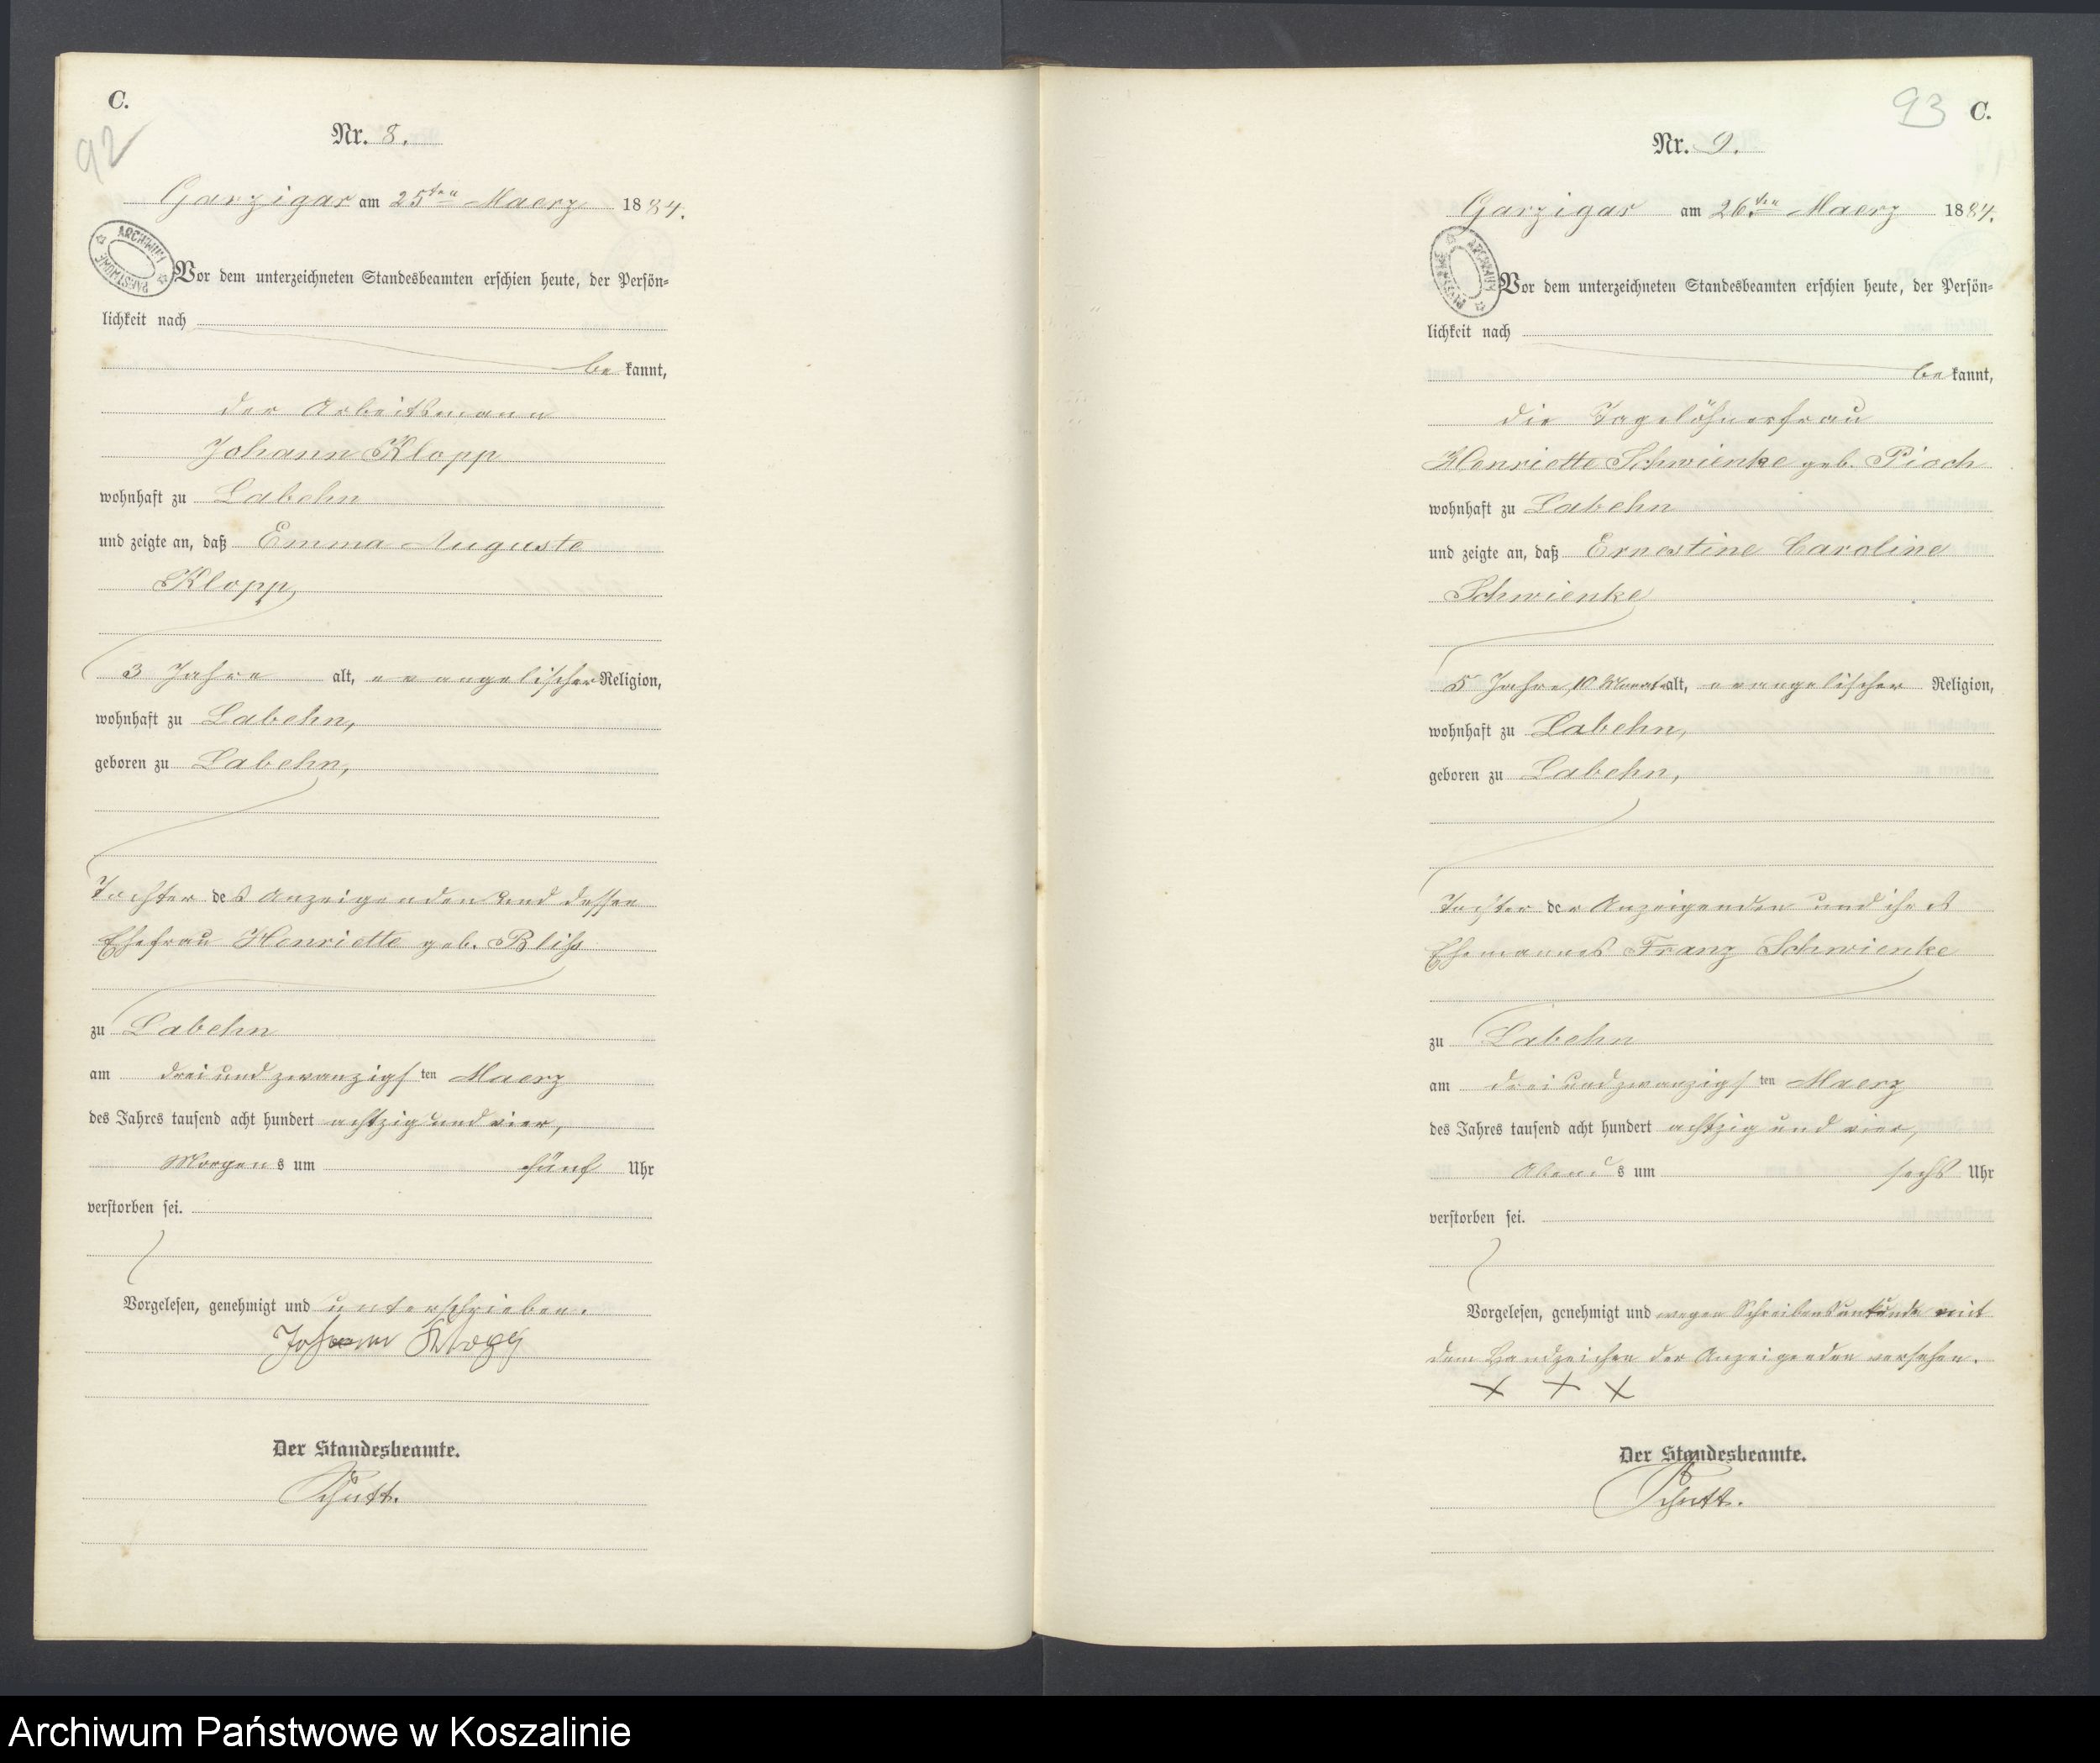 C.
92
Nr. 8.
Garzigar am 25ten Maerz 1884.
ARCHIWUM PAŃSTWOWE
Vor dem unterzeichneten Standesbeamten erschien heute, der Persön-
lichkeit nach
be kannt,
der Arbeitsmann
Johann Klopp
wohnhaft zu Labehn
und zeigte an, daß Emma Auguste
Klopp,
3 Jahre alt, evangelischer Religion,
wohnhaft zu Labehn,
geboren zu Labehn,
Tochter des Anzeigenden und dessen
Ehefrau Henriette geb. Bliss
zu Labehn
am drei und zwanzigsten Maerz
des Jahres tausend acht hundert achtzig und vier,
Morgens um fünf Uhr
verstorben sei.
Vorgelesen, genehmigt und unterschrieben.
Johann Klopp
Der Standesbeamte.
93 C.
Nr. 9.
Garzigar am 26ten Maerz 1884.
Vor dem unterzeichneten Standesbeamten erschien heute, der Persön-
lichkeit nach
be kannt,
die Tagelöhnerfrau
Henriette Schwienke geb. Pioch
wohnhaft zu Labehn
und zeigte an, daß Ernestine Caroline
Schwienke
5 Jahre 10 Monate alt, evangelischer Religion,
wohnhaft zu Labehn,
geboren zu Labehn,
Tochter der Anzeigenden und ihres
Ehemannes Franz Schwienke
zu Labehn
am drei und zwanzigsten Maerz
des Jahres tausend acht hundert achtzig und vier,
Abends um sechs Uhr
verstorben sei.
Vorgelesen, genehmigt und wegen Schreibensunkunde mit
dem Handzeichen der Anzeigenden versehen.
X X X
Der Standesbeamte.
Archiwum Państwowe w Koszalinie